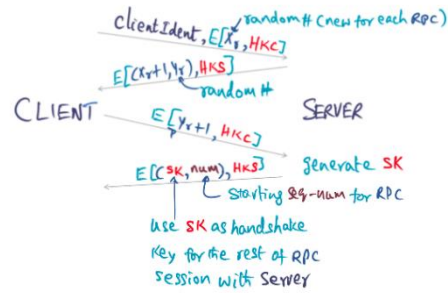 random # (new for each RPC)
clientIdent, E[Xr, HKC]
E[(Xr+1, Yr), HKS]
random #
CLIENT
SERVER
E[Yr+1, HKC]
E[(SK, num), HKS]
generate SK
Starting seq-num for RPC
use SK as handshake
Key for the rest of RPC
session with Server